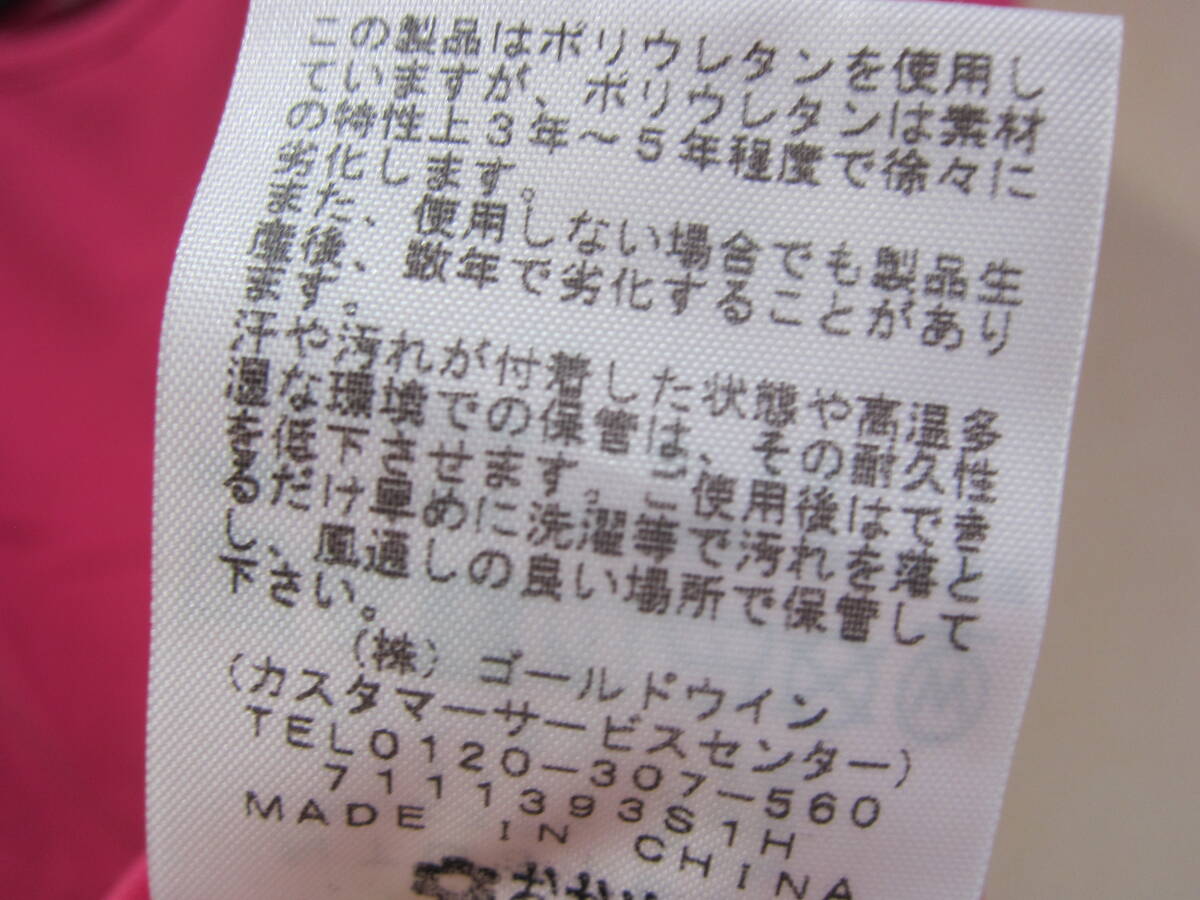 この製品はポリウレタンを使用し
ていますが、ポリウレタンは素材
の特性上3年～5年程度で徐々に
劣化します。
また、使用しない場合でも製品生
産後、数年で劣化することがあり
ます。
汗や汚れが付着した状態や高温多
湿な環境での保管は、その耐久性
を低下させます。ご使用後はでき
るだけ早めに洗濯等で汚れを落と
し、風通しの良い場所で保管して
下さい。
(株)ゴールドウイン
(カスタマーサービスセンター)
TEL0120-307-560
7111393S1H
MADE IN CHINA